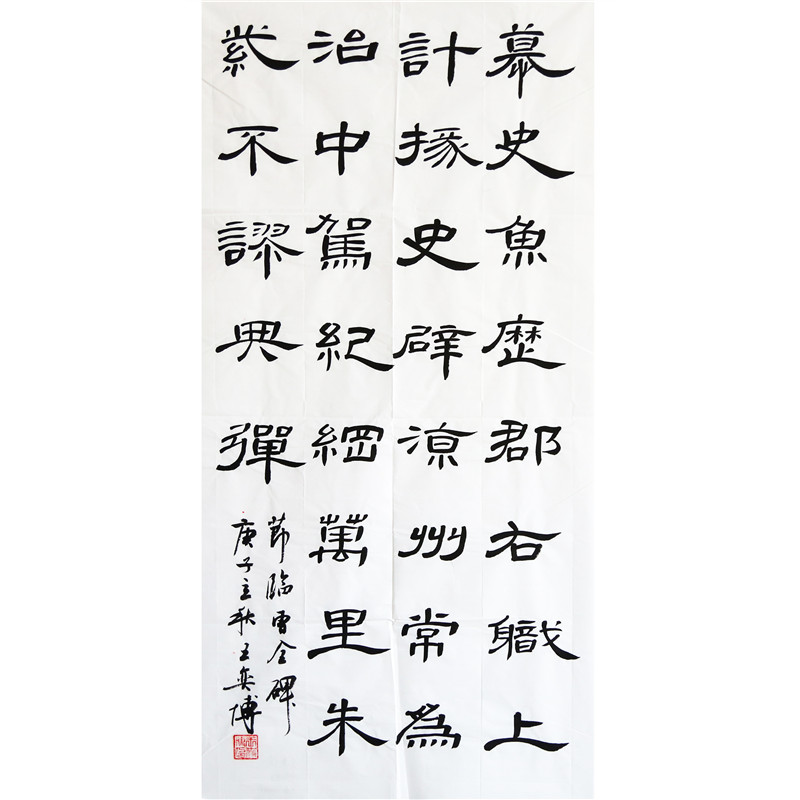 慕史魚歷郡右職上
計掾史辟涼州常為
治中駕紀綱萬里朱
紫不謬典彈
節臨曹全碑
庚子立秋王奕博